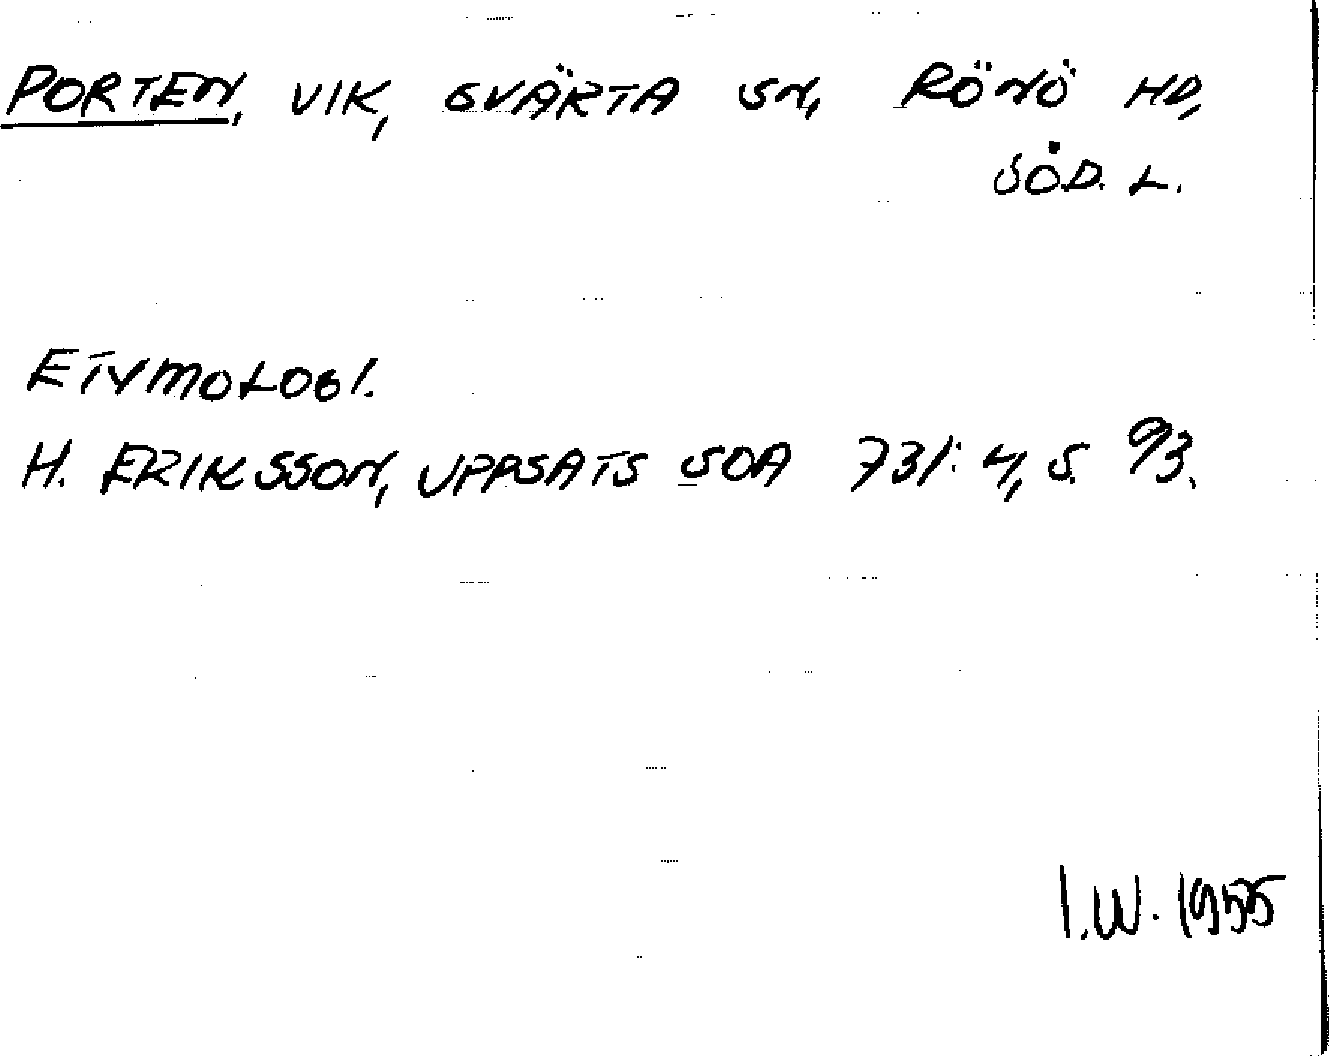 PORTEN, VIK, SVÄRTA SN, RÖNÖ HD,
SÖD. L.
ETYMOLOGI.
H. ERIKSSON, UPPSATS SOA 731: 4, S. 93.
I.W. 1955